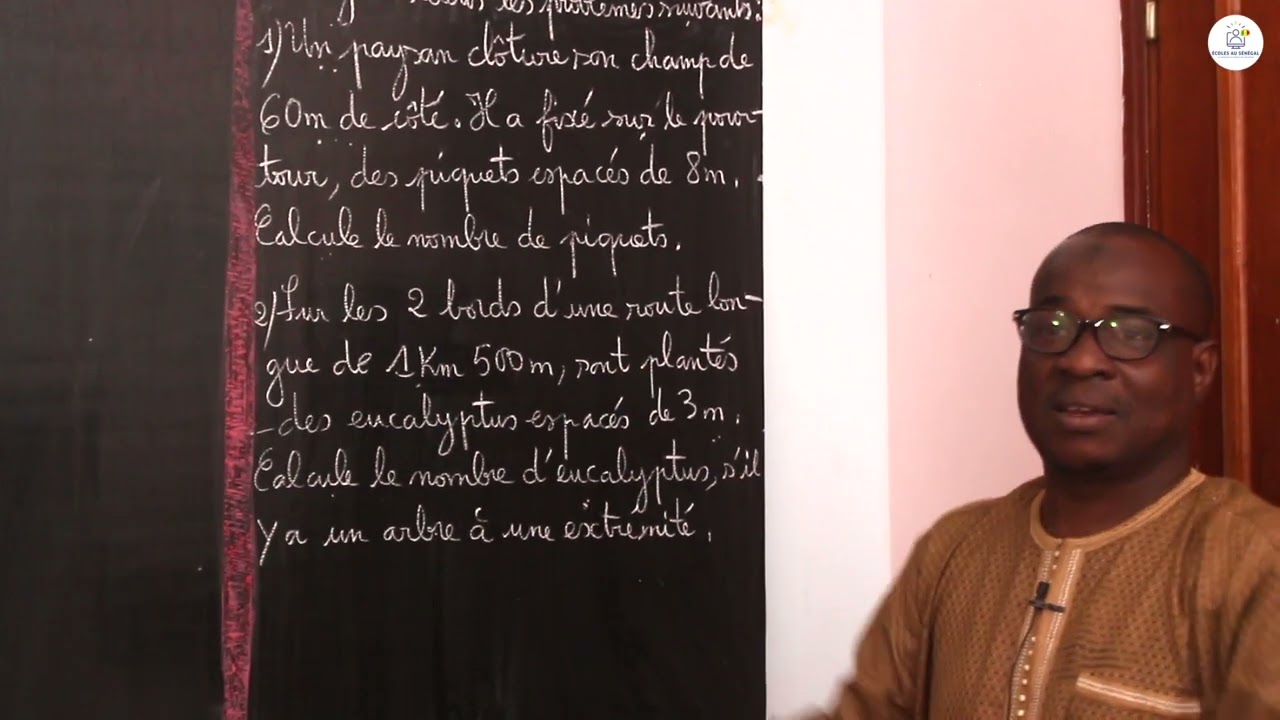 les problèmes suivants.
1) Un paysan clôture son champ de
60m de côté. Il a fixé sur le pour-
tour, des piquets espacés de 8m.
Calcule le nombre de piquets.
2) Sur les 2 bords d'une route lon-
gue de 1Km 500m, sont plantés
- des eucalyptus espacés de 3m.
Calcule le nombre d'eucalyptus, s'il
y a un arbre à une extrémité.
ÉCOLES AU SÉNÉGAL